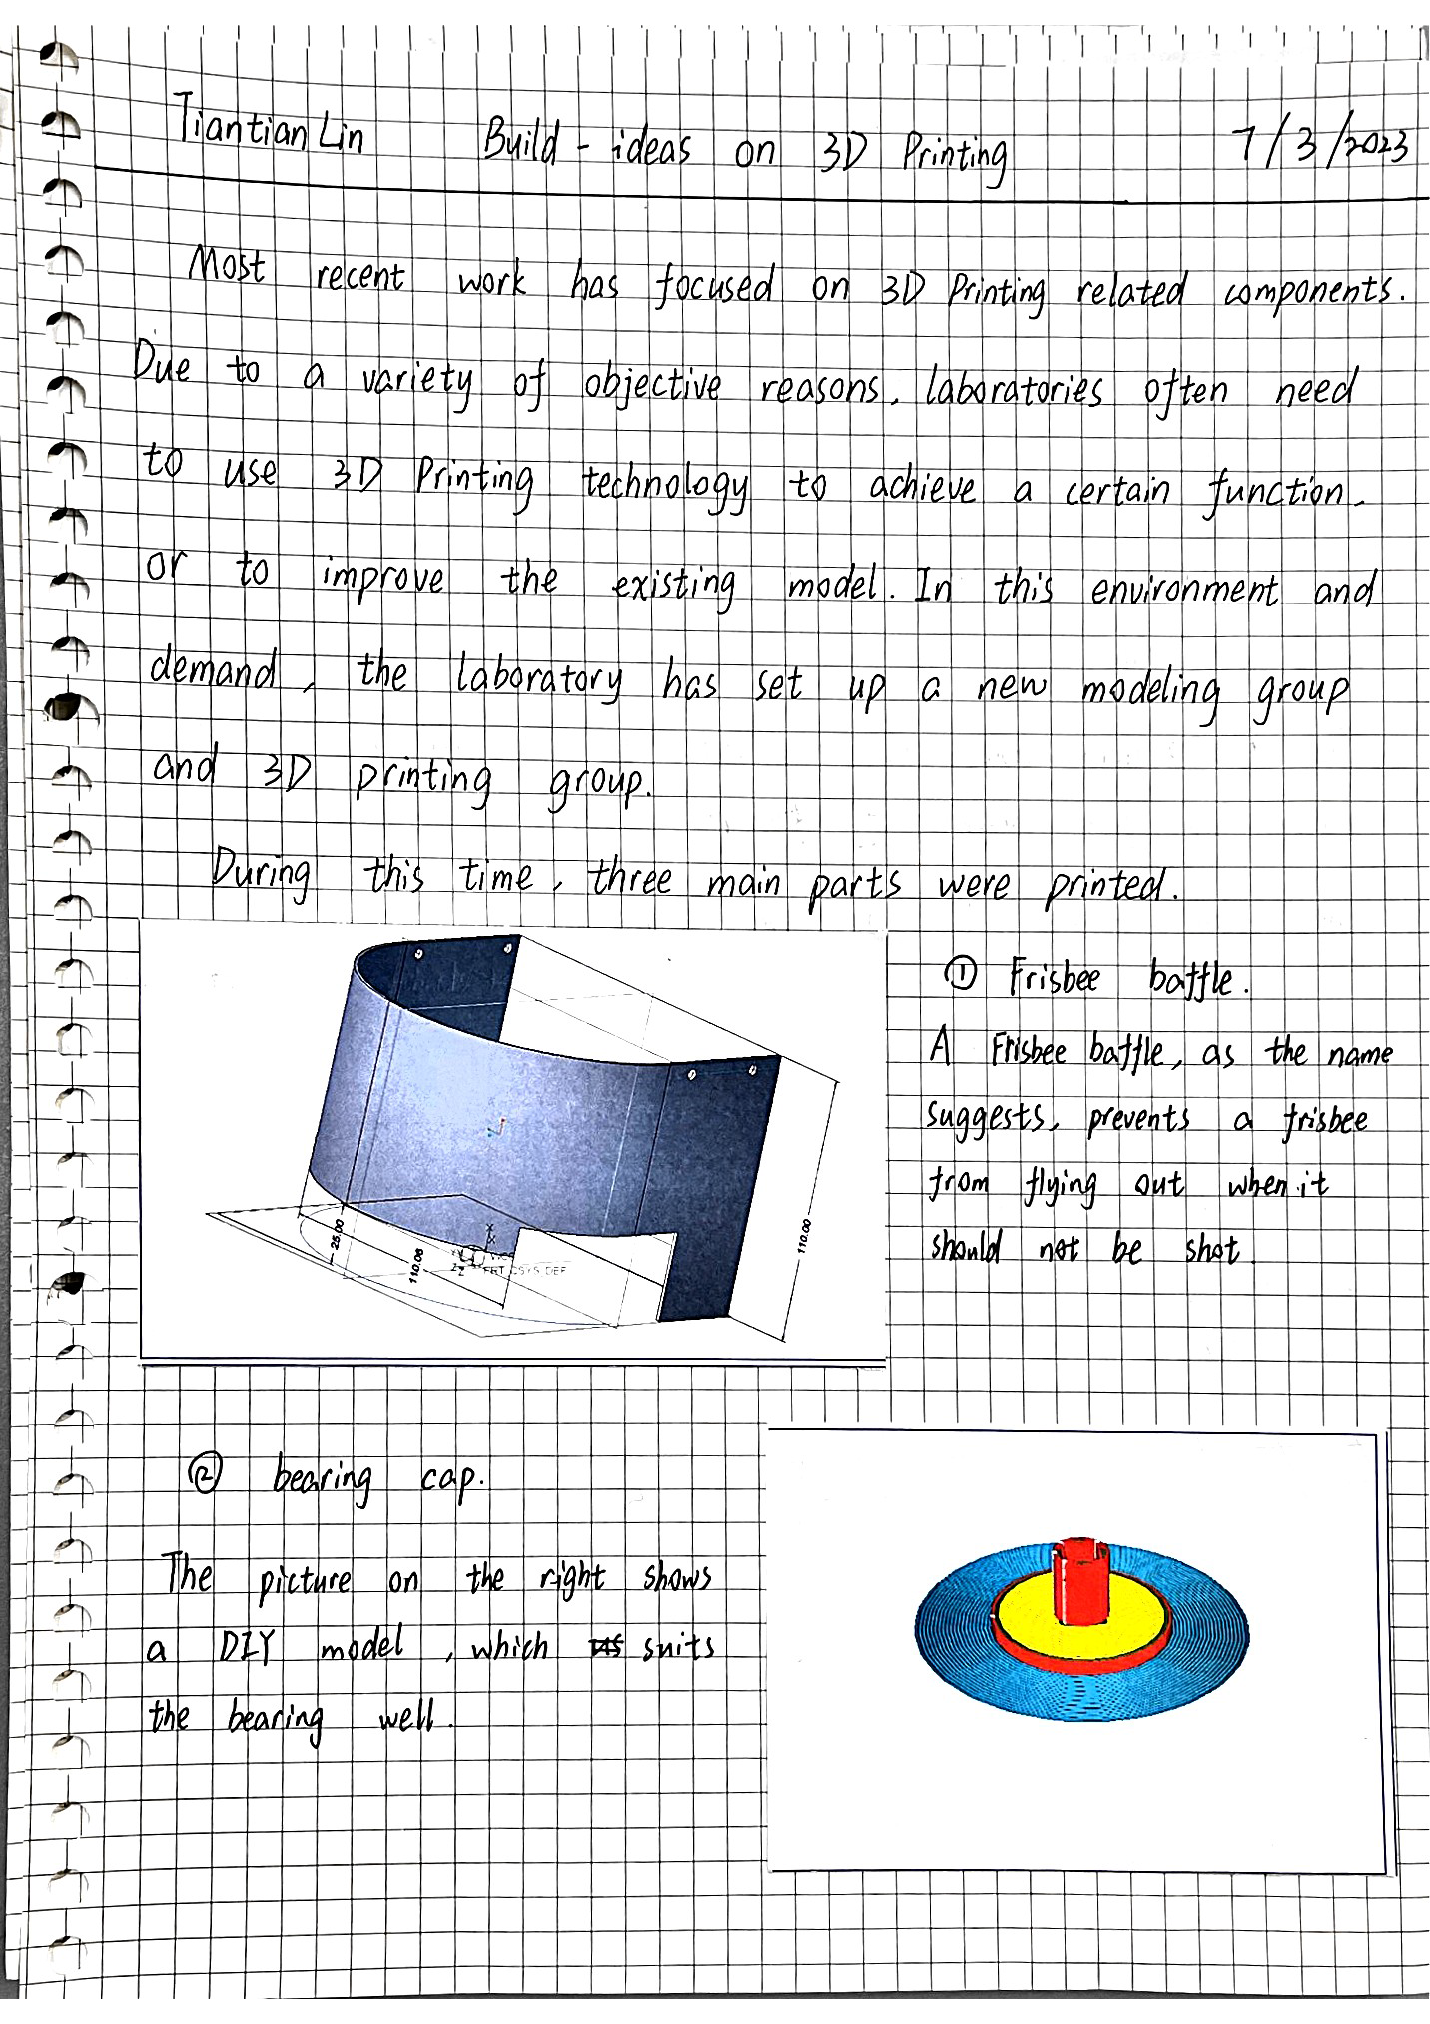 Tiantian Lin Build - ideas on 3D Printing 7/3/2023
Most recent work has focused on 3D Printing related components.
Due to a variety of objective reasons, laboratories often need
to use 3D Printing technology to achieve a certain function,
or to improve the existing model. In this environment and
demand, the laboratory has set up a new modeling group
and 3D printing group.
During this time, three main parts were printed.
① Frisbee baffle.
A Frisbee baffle, as the name
suggests, prevents a frisbee
from flying out when it
should not be shot.
25.00
110.06
110.00
CSYS_DEF
② bearing cap.
The picture on the right shows
a DIY model, which suits
the bearing well.